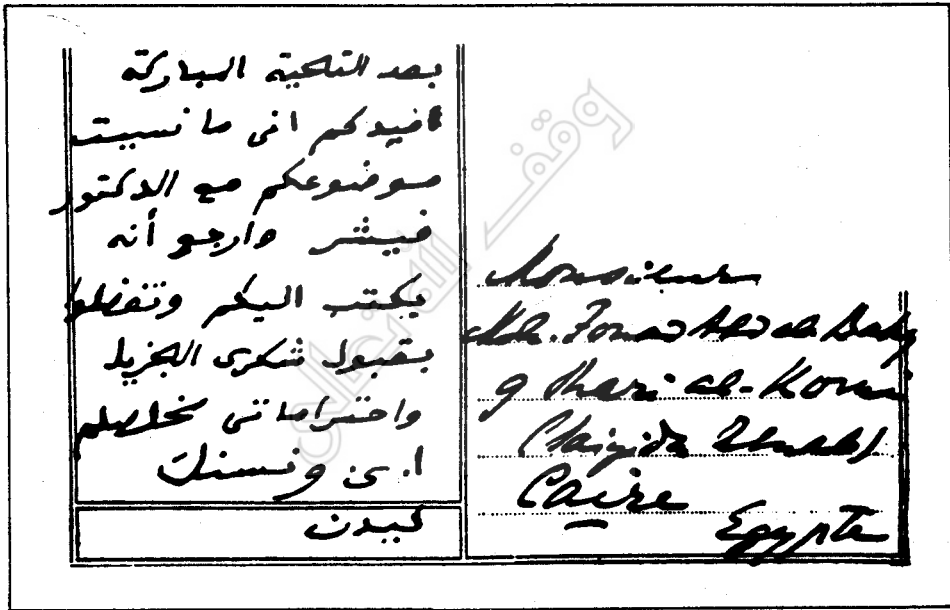 بعد التحية المباركة
أفيدكم انى ما نسيت
موضوعكم مع الدكتور
فيشر وارجو أنه
يكتب اليكم وتفضلوا
بقبول شكرى الجزيل
واحتراماتى مخلصكم
ا. ى ونسنك
ليدن
Monsieur
Moh. Fouad Abd al-Baky
9 Shari al-Komi
(Saiyida Zenab)
Caire
Egypte
وقف